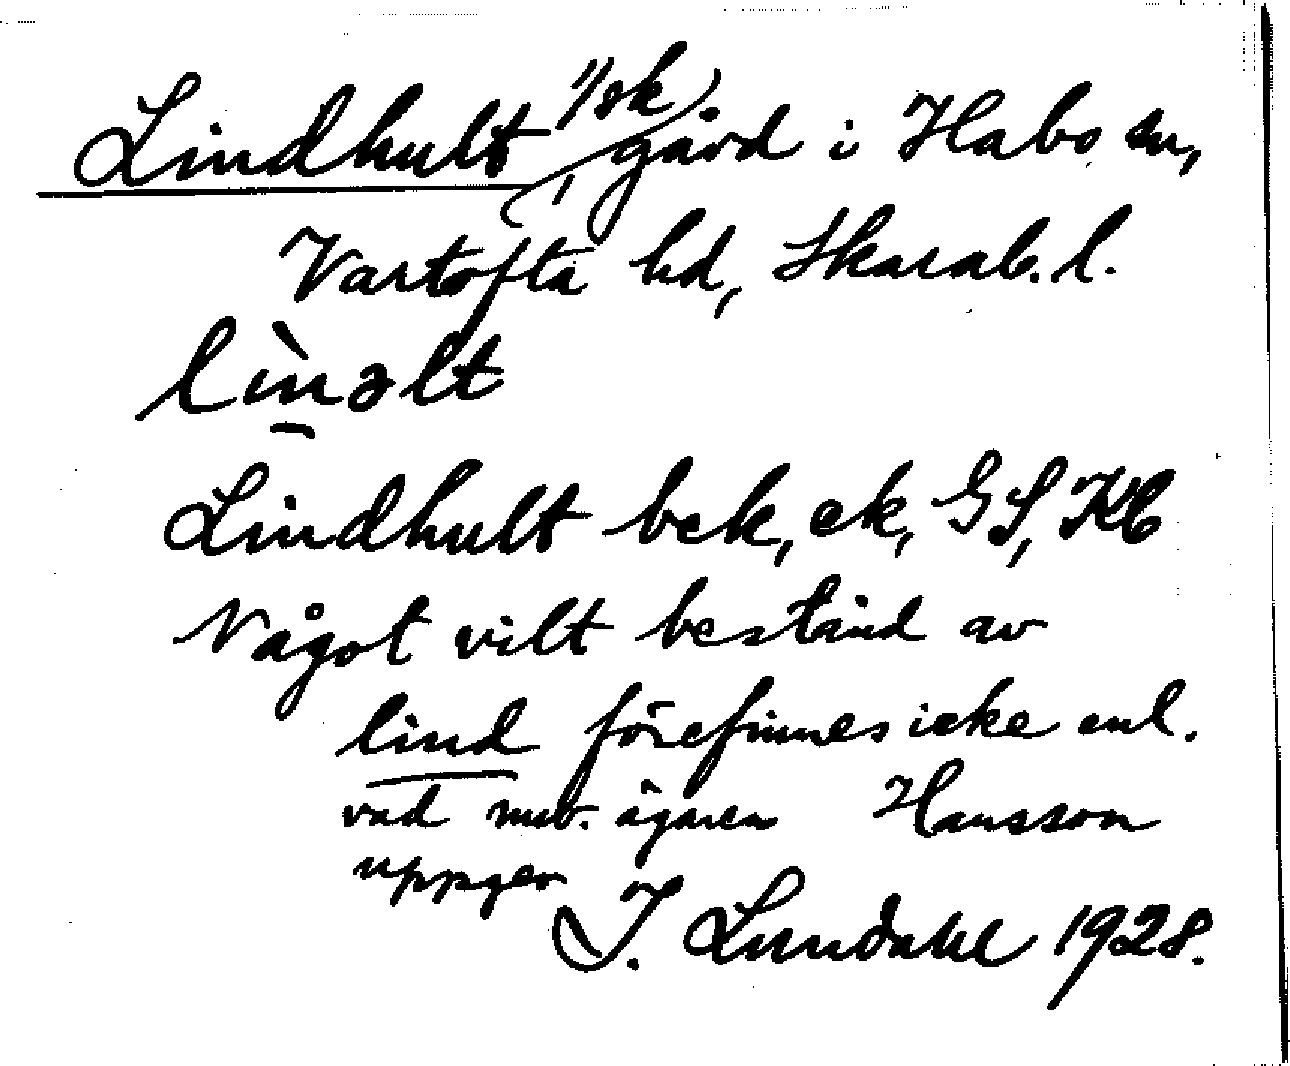 Lindhult 1/1 sk gård i Habo sn,
Vartofta hd, Skarab. l.
lìnəlt
Lindhult bek, ek, GS, KB
Något vilt bestånd av
lind förefinnes icke enl.
vad nuv. ägaren Hansson
uppger
J. Lundahl 1928.